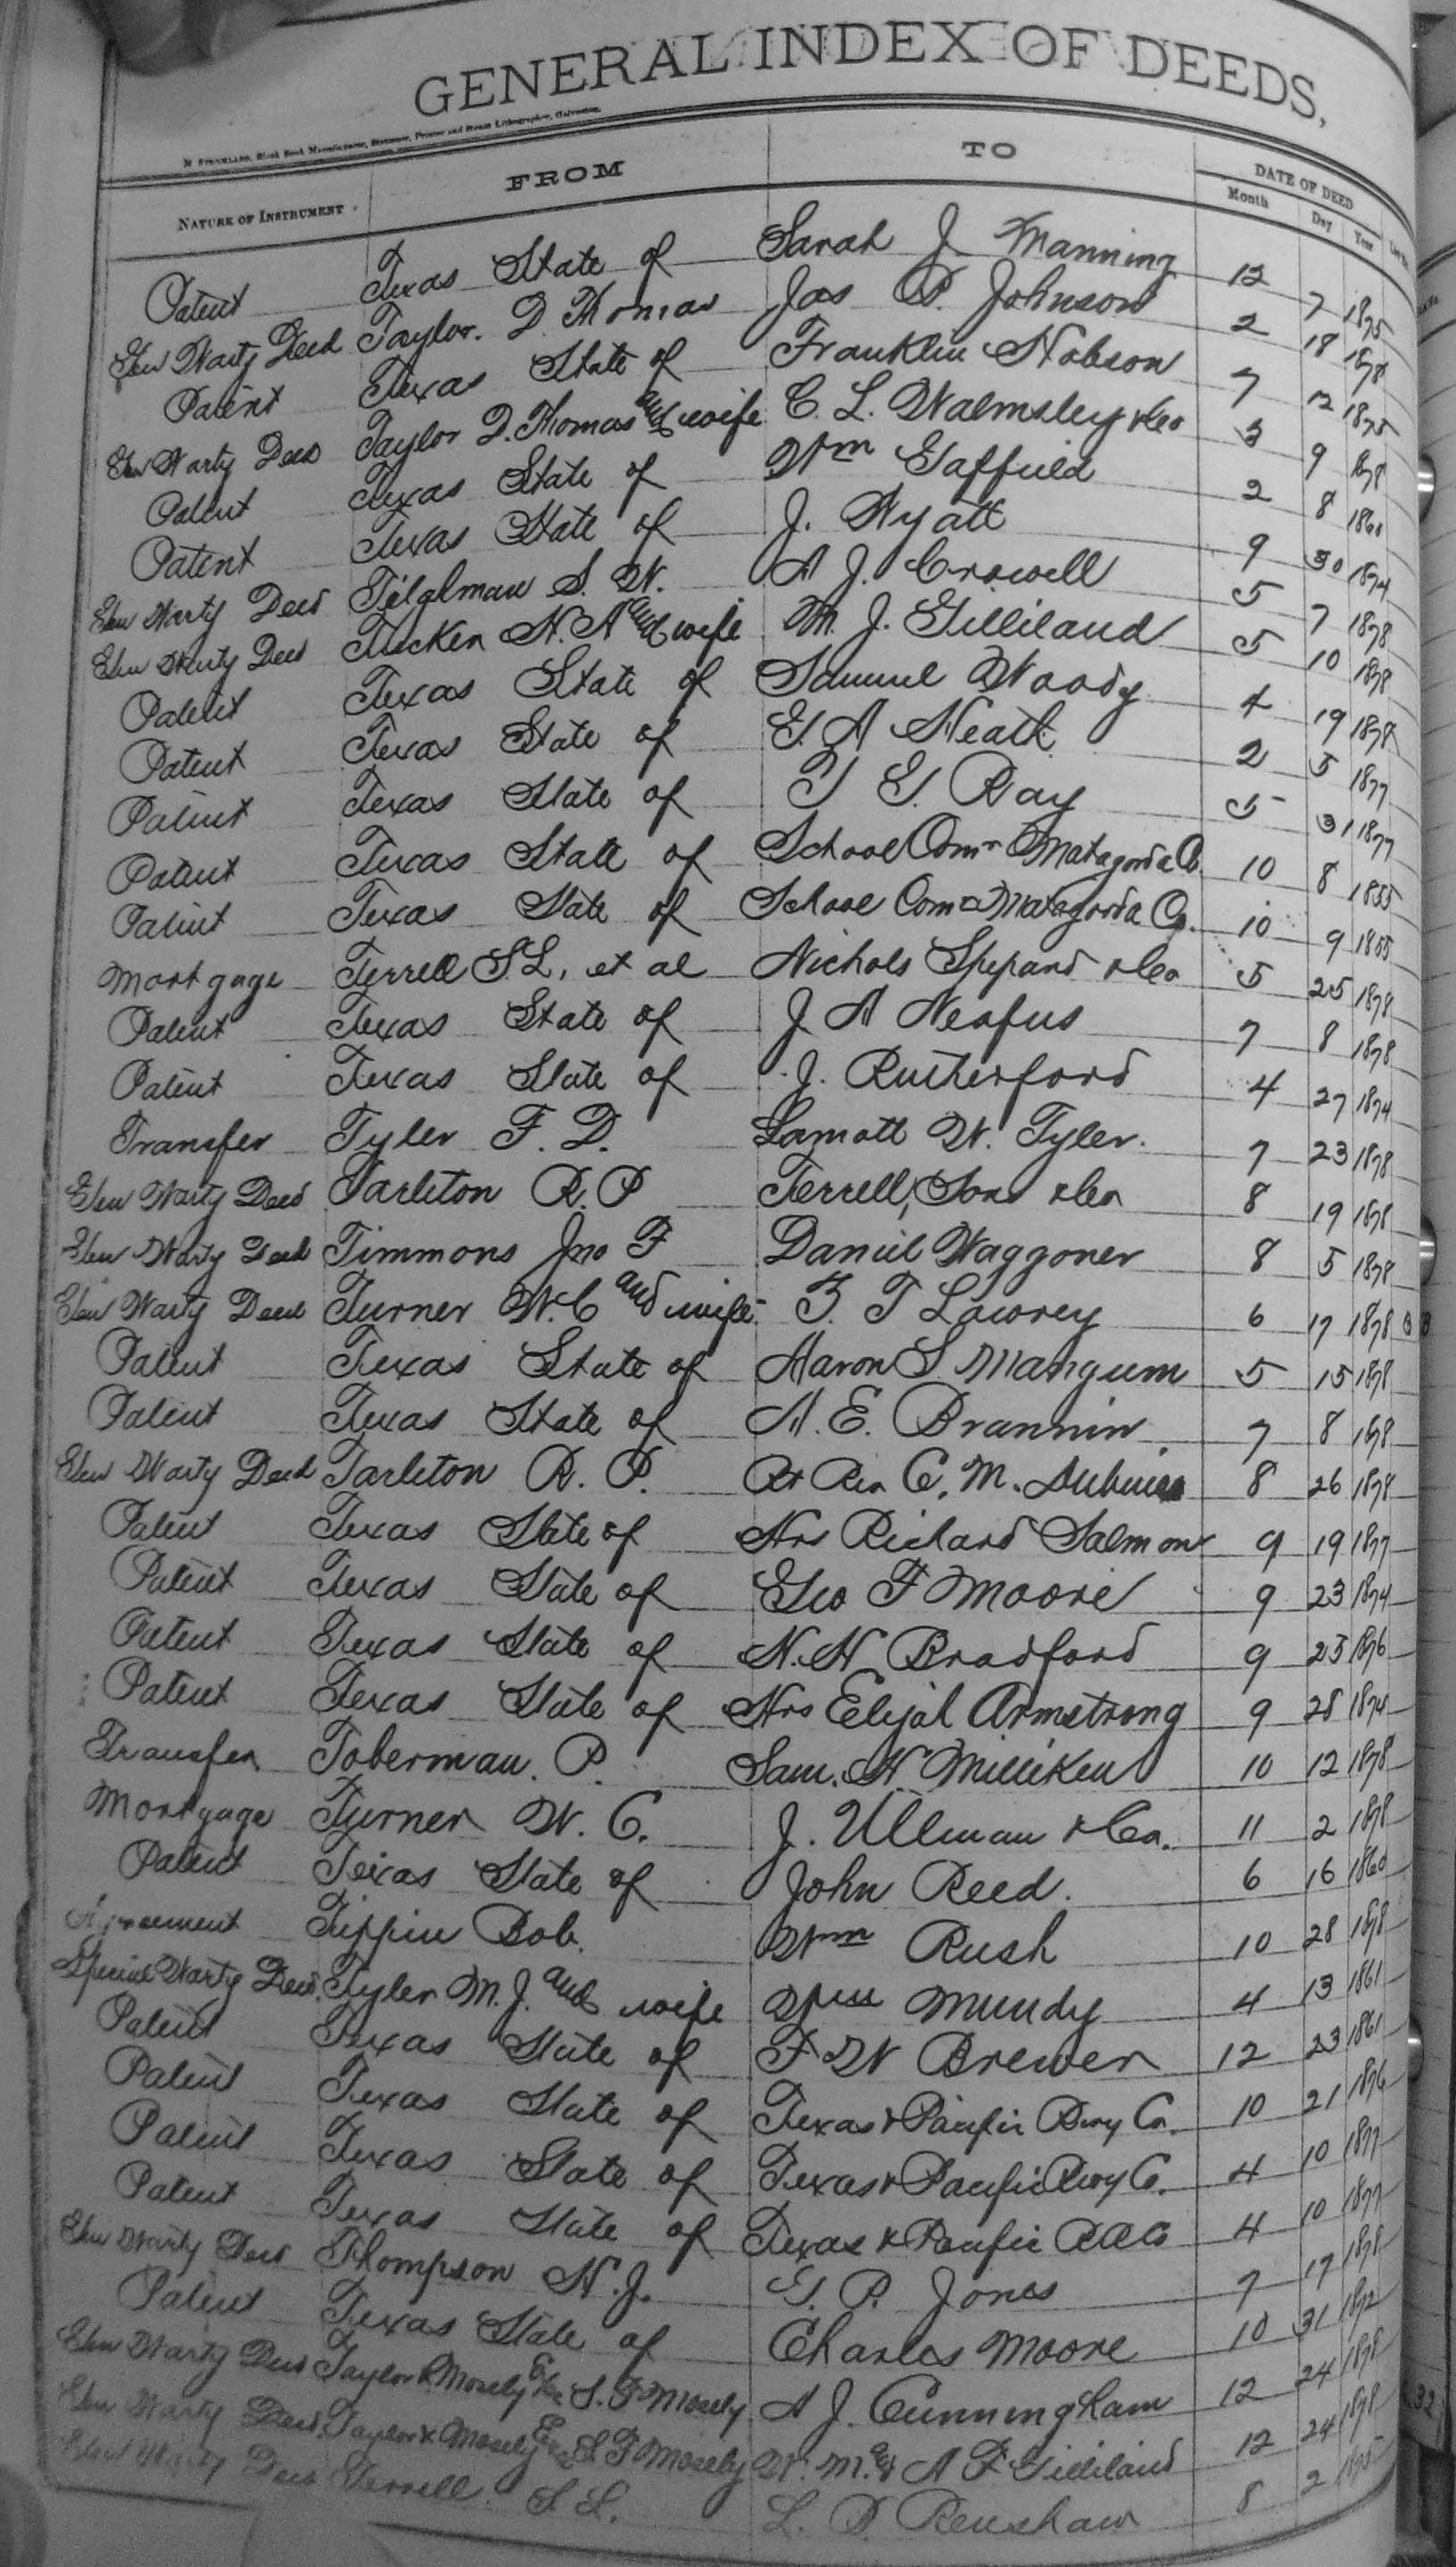 GENERAL INDEX OF DEEDS,
M STRICKLAND, Blank Book Manufacturer, Stationer, Printer and Steam Lithographer, Galveston.
NATURE OF INSTRUMENT FROM TO DATE OF DEED
Month Day Year
Patent Texas State of Sarah J. Manning 12 7 1875
Gen Warty Deed Taylor. D. Thomas Jas P. Johnson 2 18 1878
Patent Texas State of Franklin Hobson 7 12 1875
Gen Warty Deed Taylor D. Thomas and wife C. L. Walmsley & Co 3 9 1878
Patent Texas State of Wm Gaffield 2 8 1860
Patent Texas State of J. Wyatt 9 30 1874
Gen Warty Deed Tilghman S. W. A J. Crowell 5 7 1878
Gen Warty Deed Tucker H. A and wife M. J. Gilliland 5 10 1878
Patent Texas State of Samuel Woody 4 19 1878
Patent Texas State of G. A Heath 2 5 1877
Patent Texas State of Y G. Ray 5 31 1877
Patent Texas State of School Comr Matagorda Co. 10 8 1855
Patent Texas State of School Com Matagorda Co. 10 9 1855
Mortgage Terrell S. L. et al Nichols Shepard & Co 5 25 1878
Patent Texas State of J A Neafus 7 8 1878
Patent Texas State of J. Rutherford 4 27 1874
Transfer Tyler F. D. Lamott W. Tyler. 7 23 1878
Gen Warty Deed Tarleton R. P Terrell, Sons & Co 8 19 1878
Gen Warty Deed Timmons Jno F Daniel Waggoner 8 5 1878
Gen Warty Deed Turner W. C and wife Z. T Lowrey 6 17 1878
Patent Texas State of Aaron S. Mangum 5 15 1878
Patent Texas State of A. E. Brannin 7 8 1878
Gen Warty Deed Tarleton R. P. Rt Rev C. M. Dubuis 8 26 1878
Patent Texas State of Hrs Richard Salmon 9 19 1877
Patent Texas State of Geo F Moore 9 23 1874
Patent Texas State of H. H Bradford 9 25 1876
Patent Texas State of Hrs Elijah Armstrong 9 28 1874
Transfer Toberman. P. Sam. H. Milliken 10 12 1878
Mortgage Turner W. C. J. Ullman & Co. 11 2 1878
Patent Texas State of John Reed. 6 16 1860
Agreement Tippin Bob. Wm Rush 10 28 1878
Special Warty Deed. Tyler M. J. and wife Wm Mundy 4 13 1861
Patent Texas State of F W Brewer 12 23 1861
Patent Texas State of Texas & Pacific Rwy Co. 10 21 1876
Patent Texas State of Texas & Pacific Rwy Co. 4 10 1877
Patent Texas State of Texas & Pacific RR Co 4 10 1877
Gen Warty Deed Thompson H. J. G. P. Jones 7 17 1878
Patent Texas State of Charles Moore 10 31 1872
Gen Warty Deed Taylor & Mosely S. F Mosely A J. Cunningham 12 24 1878
Gen Warty Deed. Taylor & Mosely S. F Mosely W. M. & A F Gilliland 12 24 1878
Gen Warty Deed Terrell. S. L. L. P. Renshaw 8 2